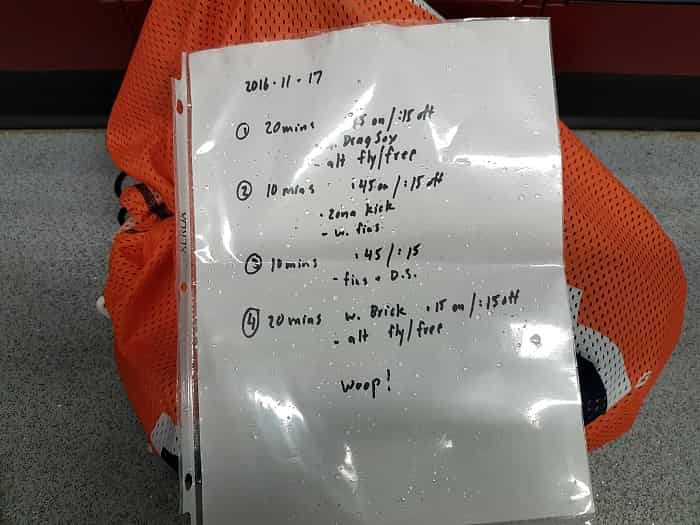 2016-11-17
① 20 mins :15 on/:15 off
- DragSox
- alt fly/free
② 10 mins :45 on/:15 off
- Zona kick
- w. fins
③ 10 mins :45/:15
- fins + D.S.
④ 20 mins w. Brick :15 on/:15 off
- alt fly/free
Woop!